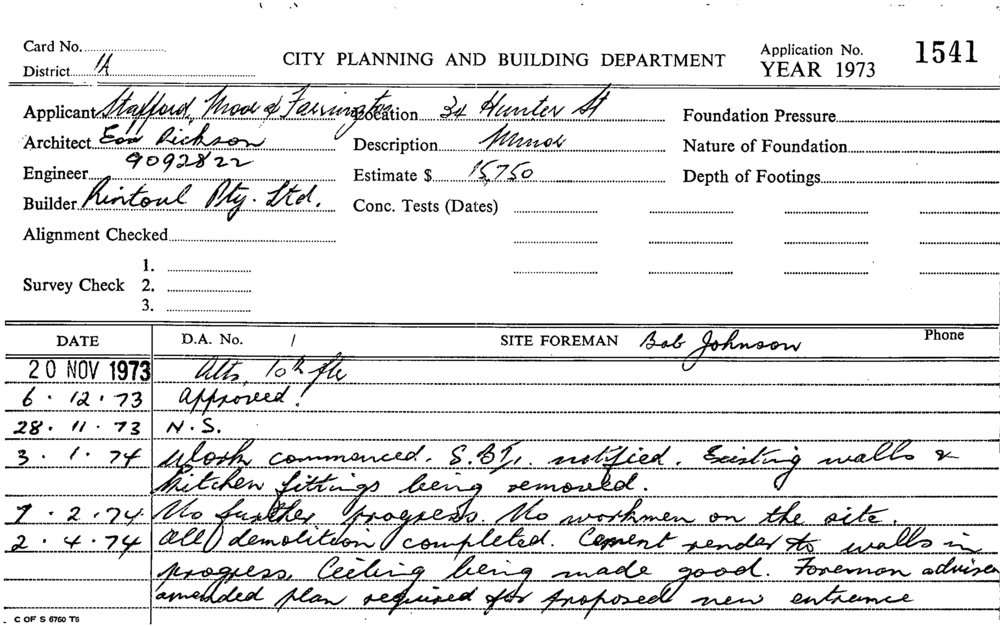 Card No.
CITY PLANNING AND BUILDING DEPARTMENT
Application No. 1541
District 1A
YEAR 1973
Applicant Stafford, Moor & Farrington Location 34 Hunter St Foundation Pressure
Architect Eon Dickson Description Minor Nature of Foundation
9092822
Engineer Estimate $ 15,750 Depth of Footings
Builder Rintoul Pty. Ltd. Conc. Tests (Dates)
Alignment Checked
1.
Survey Check 2.
3.
DATE D.A. No. / SITE FOREMAN Bob Johnson Phone
20 NOV 1973 Alts, 10th fl
6 . 12 . 73 Approved!
28 . 11 . 73 N.S.
3 . 1 . 74 Work commenced. notified. Existing walls &
kitchen fittings being removed.
7 . 2 . 74 No further progress. No workmen on the site.
2 . 4 . 74 All demolition completed. Cement render to walls in
progress. Ceiling being made good. Foreman advises
amended plan required for proposed new entrance
C OF S 6760 T6